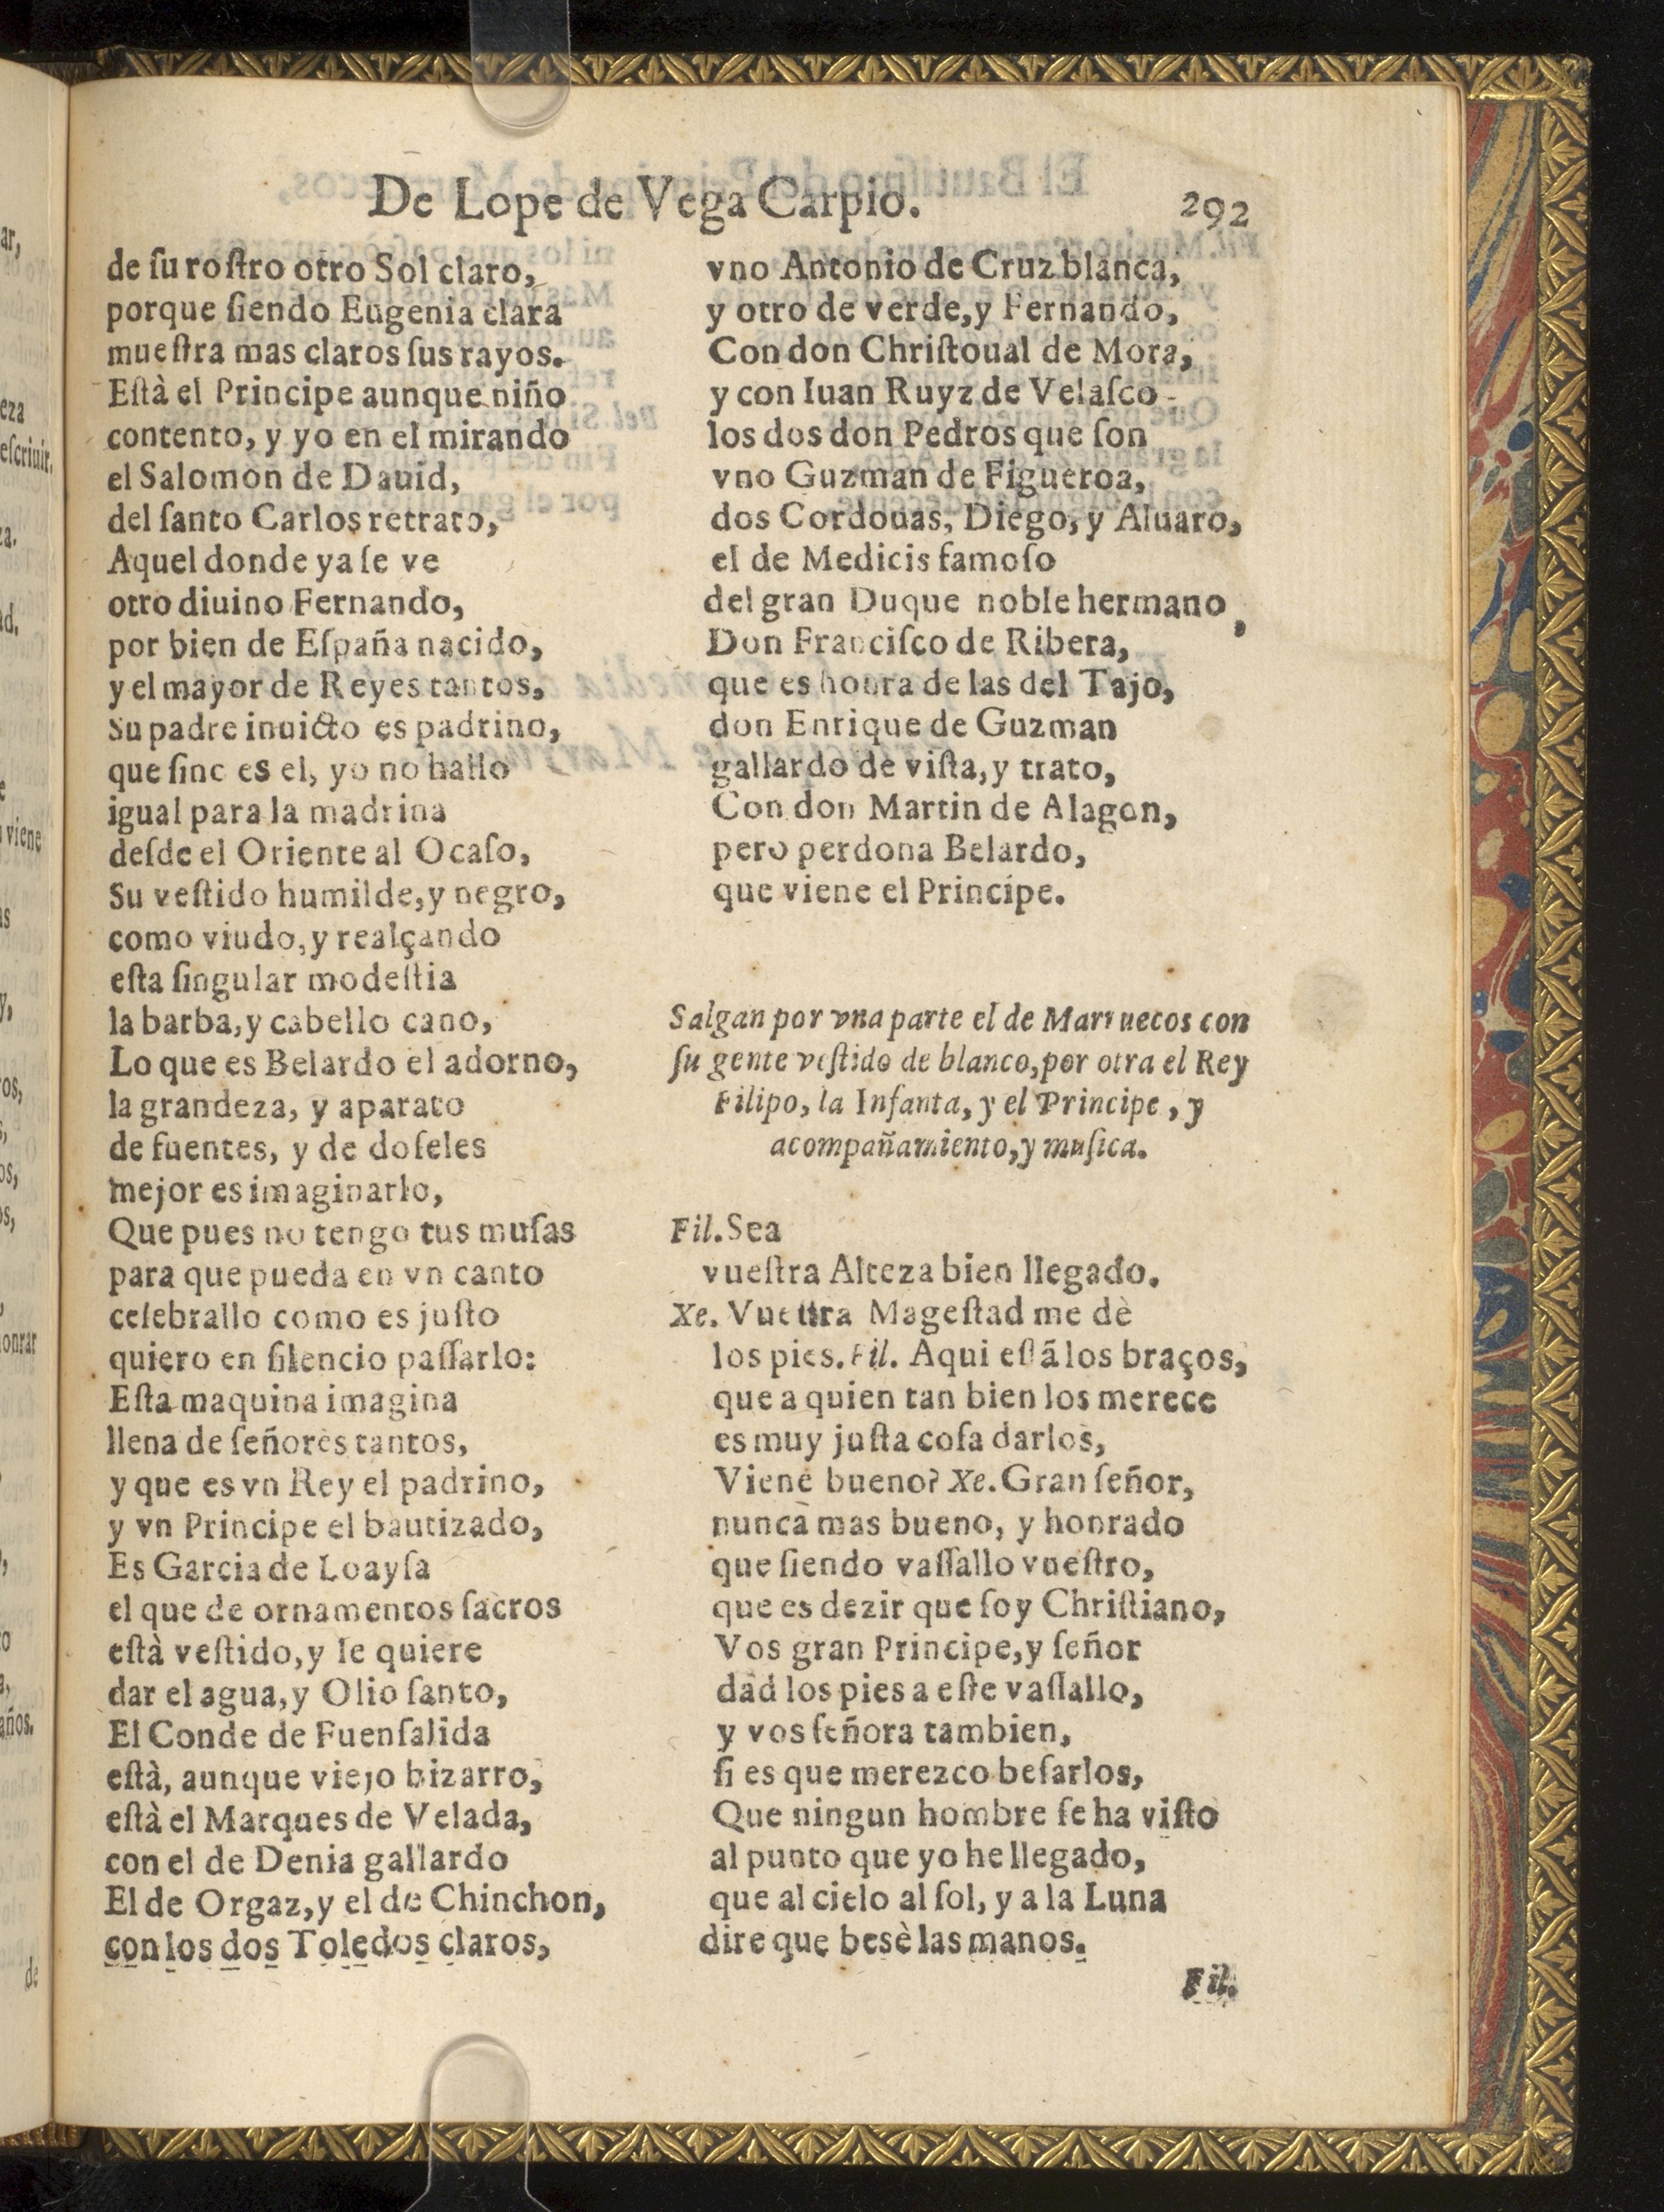 De Lope de Vega Carpio. 292
de ſu roſtro otro Sol claro,
porque ſiendo Eugenia clara
mueſtra mas claros ſus rayos.
Eſtà el Principe aunque niño
contento, y yo en el mirando
el Salomon de Dauid,
del ſanto Carlos retrato,
Aquel donde ya ſe ve
otro diuino Fernando,
por bien de Eſpaña nacido,
y el mayor de Reyes tantos,
Su padre inuicto es padrino,
que ſino es el, yo no hallo
igual para la madrina
deſde el Oriente al Ocaſo,
Su veſtido humilde, y negro,
como viudo, y realçando
eſta ſingular modeſtia
la barba, y cabello cano,
Lo que es Belardo el adorno,
la grandeza, y aparato
de fuentes, y de doſeles
mejor es imaginarlo,
Que pues no tengo tus muſas
para que pueda en vn canto
celebrallo como es juſto
quiero en ſilencio paſſarlo:
Eſta maquina imagina
llena de ſeñores tantos,
y que es vn Rey el padrino,
y vn Principe el bautizado,
Es Garcia de Loayſa
el que de ornamentos ſacros
eſtà veſtido, y le quiere
dar el agua, y Olio ſanto,
El Conde de Fuenſalida
eſtà, aunque viejo bizarro,
eſtà el Marques de Velada,
con el de Denia gallardo
El de Orgaz, y el de Chinchon,
con los dos Toledos claros,
vno Antonio de Cruz blanca,
y otro de verde, y Fernando,
Con don Chriſtoual de Mora,
y con Iuan Ruyz de Velaſco
los dos don Pedros que ſon
vno Guzman de Figueroa,
dos Cordouas, Diego, y Aluaro,
el de Medicis famoſo
del gran Duque noble hermano,
Don Franciſco de Ribera,
que es honra de las del Tajo,
don Enrique de Guzman
gallardo de viſta, y trato,
Con don Martin de Alagon,
pero perdona Belardo,
que viene el Principe.
Salgan por vna parte el de Marruecos con
ſu gente veſtido de blanco, por otra el Rey
Filipo, la Infanta, y el Principe, y
acompañamiento, y muſica.
Fil. Sea
vueſtra Alteza bien llegado.
Xe. Vueſtra Mageſtad me dè
los pies. Fil. Aqui eſtã los braços,
que a quien tan bien los merece
es muy juſta coſa darlos,
Viene bueno? Xe. Gran ſeñor,
nunca mas bueno, y honrado
que ſiendo vaſſallo vueſtro,
que es dezir que ſoy Chriſtiano,
Vos gran Principe, y ſeñor
dad los pies a eſte vaſſallo,
y vos ſeñora tambien,
ſi es que merezco beſarlos,
Que ningun hombre ſe ha viſto
al punto que yo he llegado,
que al cielo al ſol, y a la Luna
dire que besè las manos.
Fil.